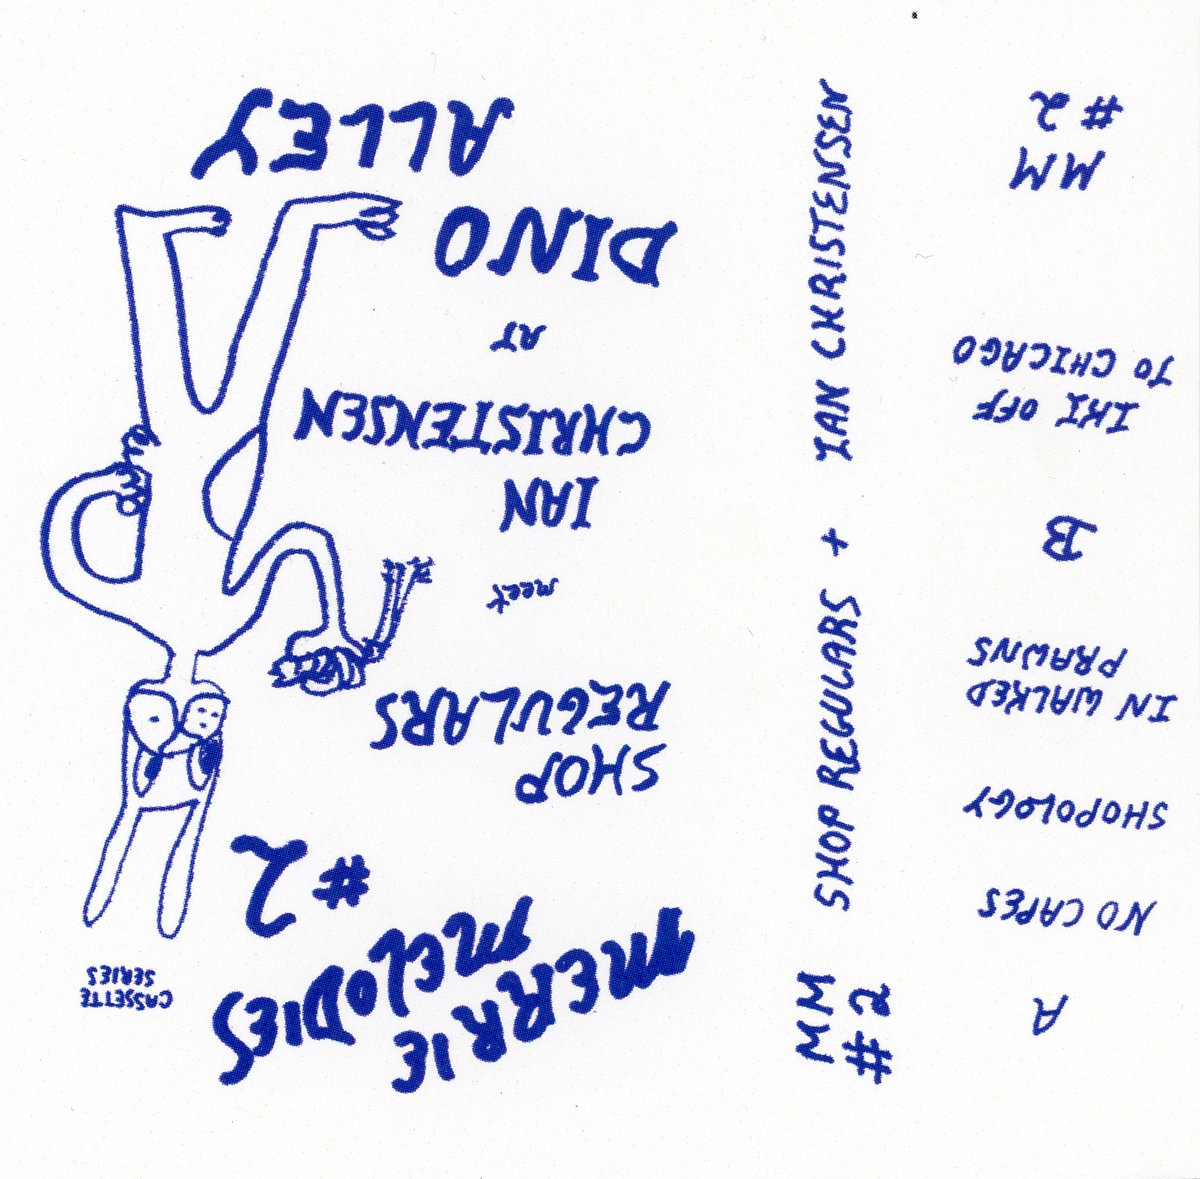 MERRIE
MELODIES
#2
CASSETTE
SERIES
SHOP
REGULARS
meet
IAN
CHRISTENSEN
AT
DINO
ALLEY
MM
#2
SHOP REGULARS + IAN CHRISTENSEN
A
NO CAPES
SHOPOLOGY
IN WALKED
PRAWNS
B
IKI OFF
TO CHICAGO
MM
#2